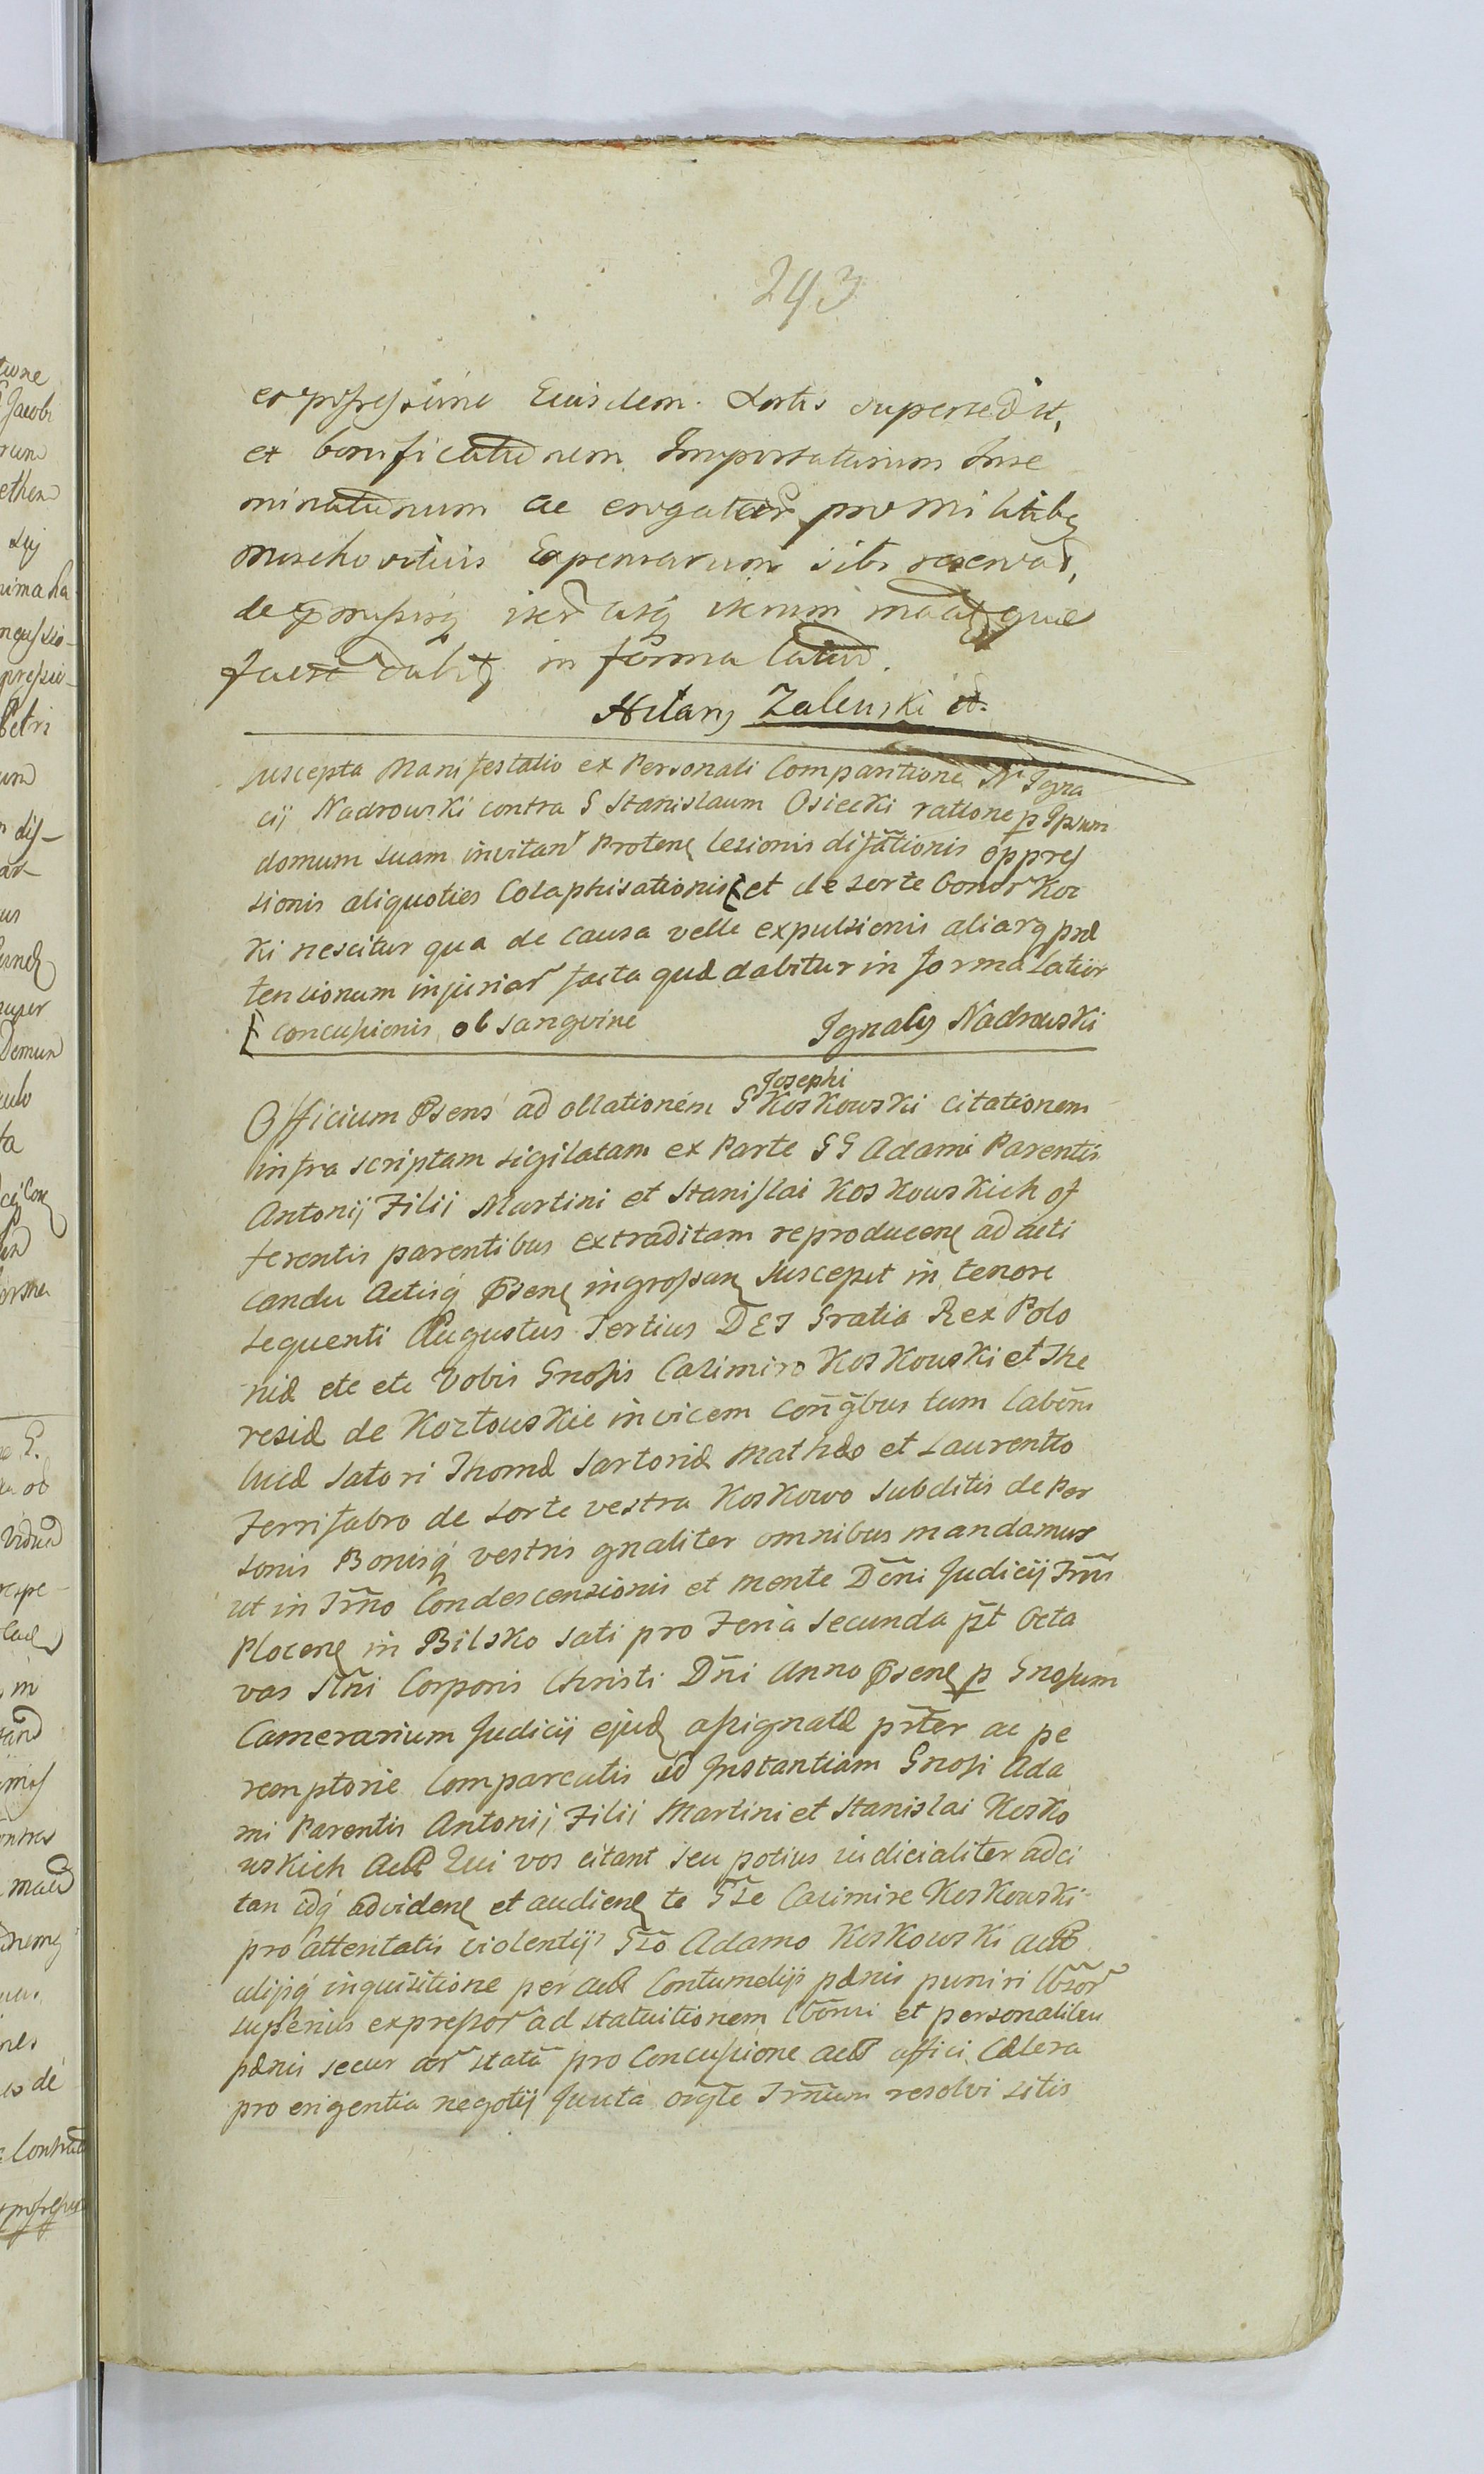 243
Eiusdem Sortis supersedit,
et bonificationem Importaturum Inse
minaturum ac erogatar pro militibq
moschoviticis Expensarum sibi reservat,
de iterum que
fuere dabitq in forma latiori.
Hilary Zalenski
Suscepta Manifestatio ex Personali Comparitione N Igna
cij Nadrowski contra G Stanislaum Osiecki ratione p Ipsum
domum suam invitan Protenq lesionis diffātionis oppres
sionis aliquoties Colaphisationis et de sorte bonor Koz
ki nescitur qua de causa velle expulsionis aliarq præ
tensionum injuriar facta quæ dabitur in forma Latior
concussionis ob sanguine Ignacy Nadrowski
Josephi
Officium Psens ad oblationem G Koskowski citationem
infra scriptam sigilatam ex Parte GG Adami Parentis
Antonij Filij Martini et Stanislai Koskowskich of
ferentis parentibus extraditam reproducenq ad acti
candu Actisq Psenq ingrossanq suscepit in tenore
sequenti Augustus Tertius DEI Gratia Rex Polo
niæ etc etc Vobis Gnosis Casimiro Koskowski et The
resiæ de Kozłowskie invicem conḡbus tum labōris
satori Thomæ Sartoriæ Mathæo et Laurentio
Ferrifabro de sorte vestra Koskowo subditis de Per
sonis Bonisq vestris gnaliter omnibus mandamus
ut in Trno Condescensionis et mente Dcni Judicij Trnis
Plocenq in Bilsko sati pro Feria Secunda pt Octa
vas Stni Corporis Christi Dni Anno Psenq p Gnosum
Camerarium Judicij ejudq assignatæ prter ac pe
remptorie Compareatis ad Instantiam Gnosi Ada
mi Parentis Antonij Filij Martini et Stanislai Kosko
wskich Act Qui vos citant seu potius iudicialiter adci
tan adq advidenq et audienq te Gse Casimire Koskowski
pro attentatis violentijs Gso Adamo Koskowski act
alijsq inquisitione per act Contumelijs pænis puniri
superius expressor ad statuitionem et personaliter
pænis secur statā pro Concussione act affici Cætera
pro exigentia negotij Juxta Trnum resolvi sitis